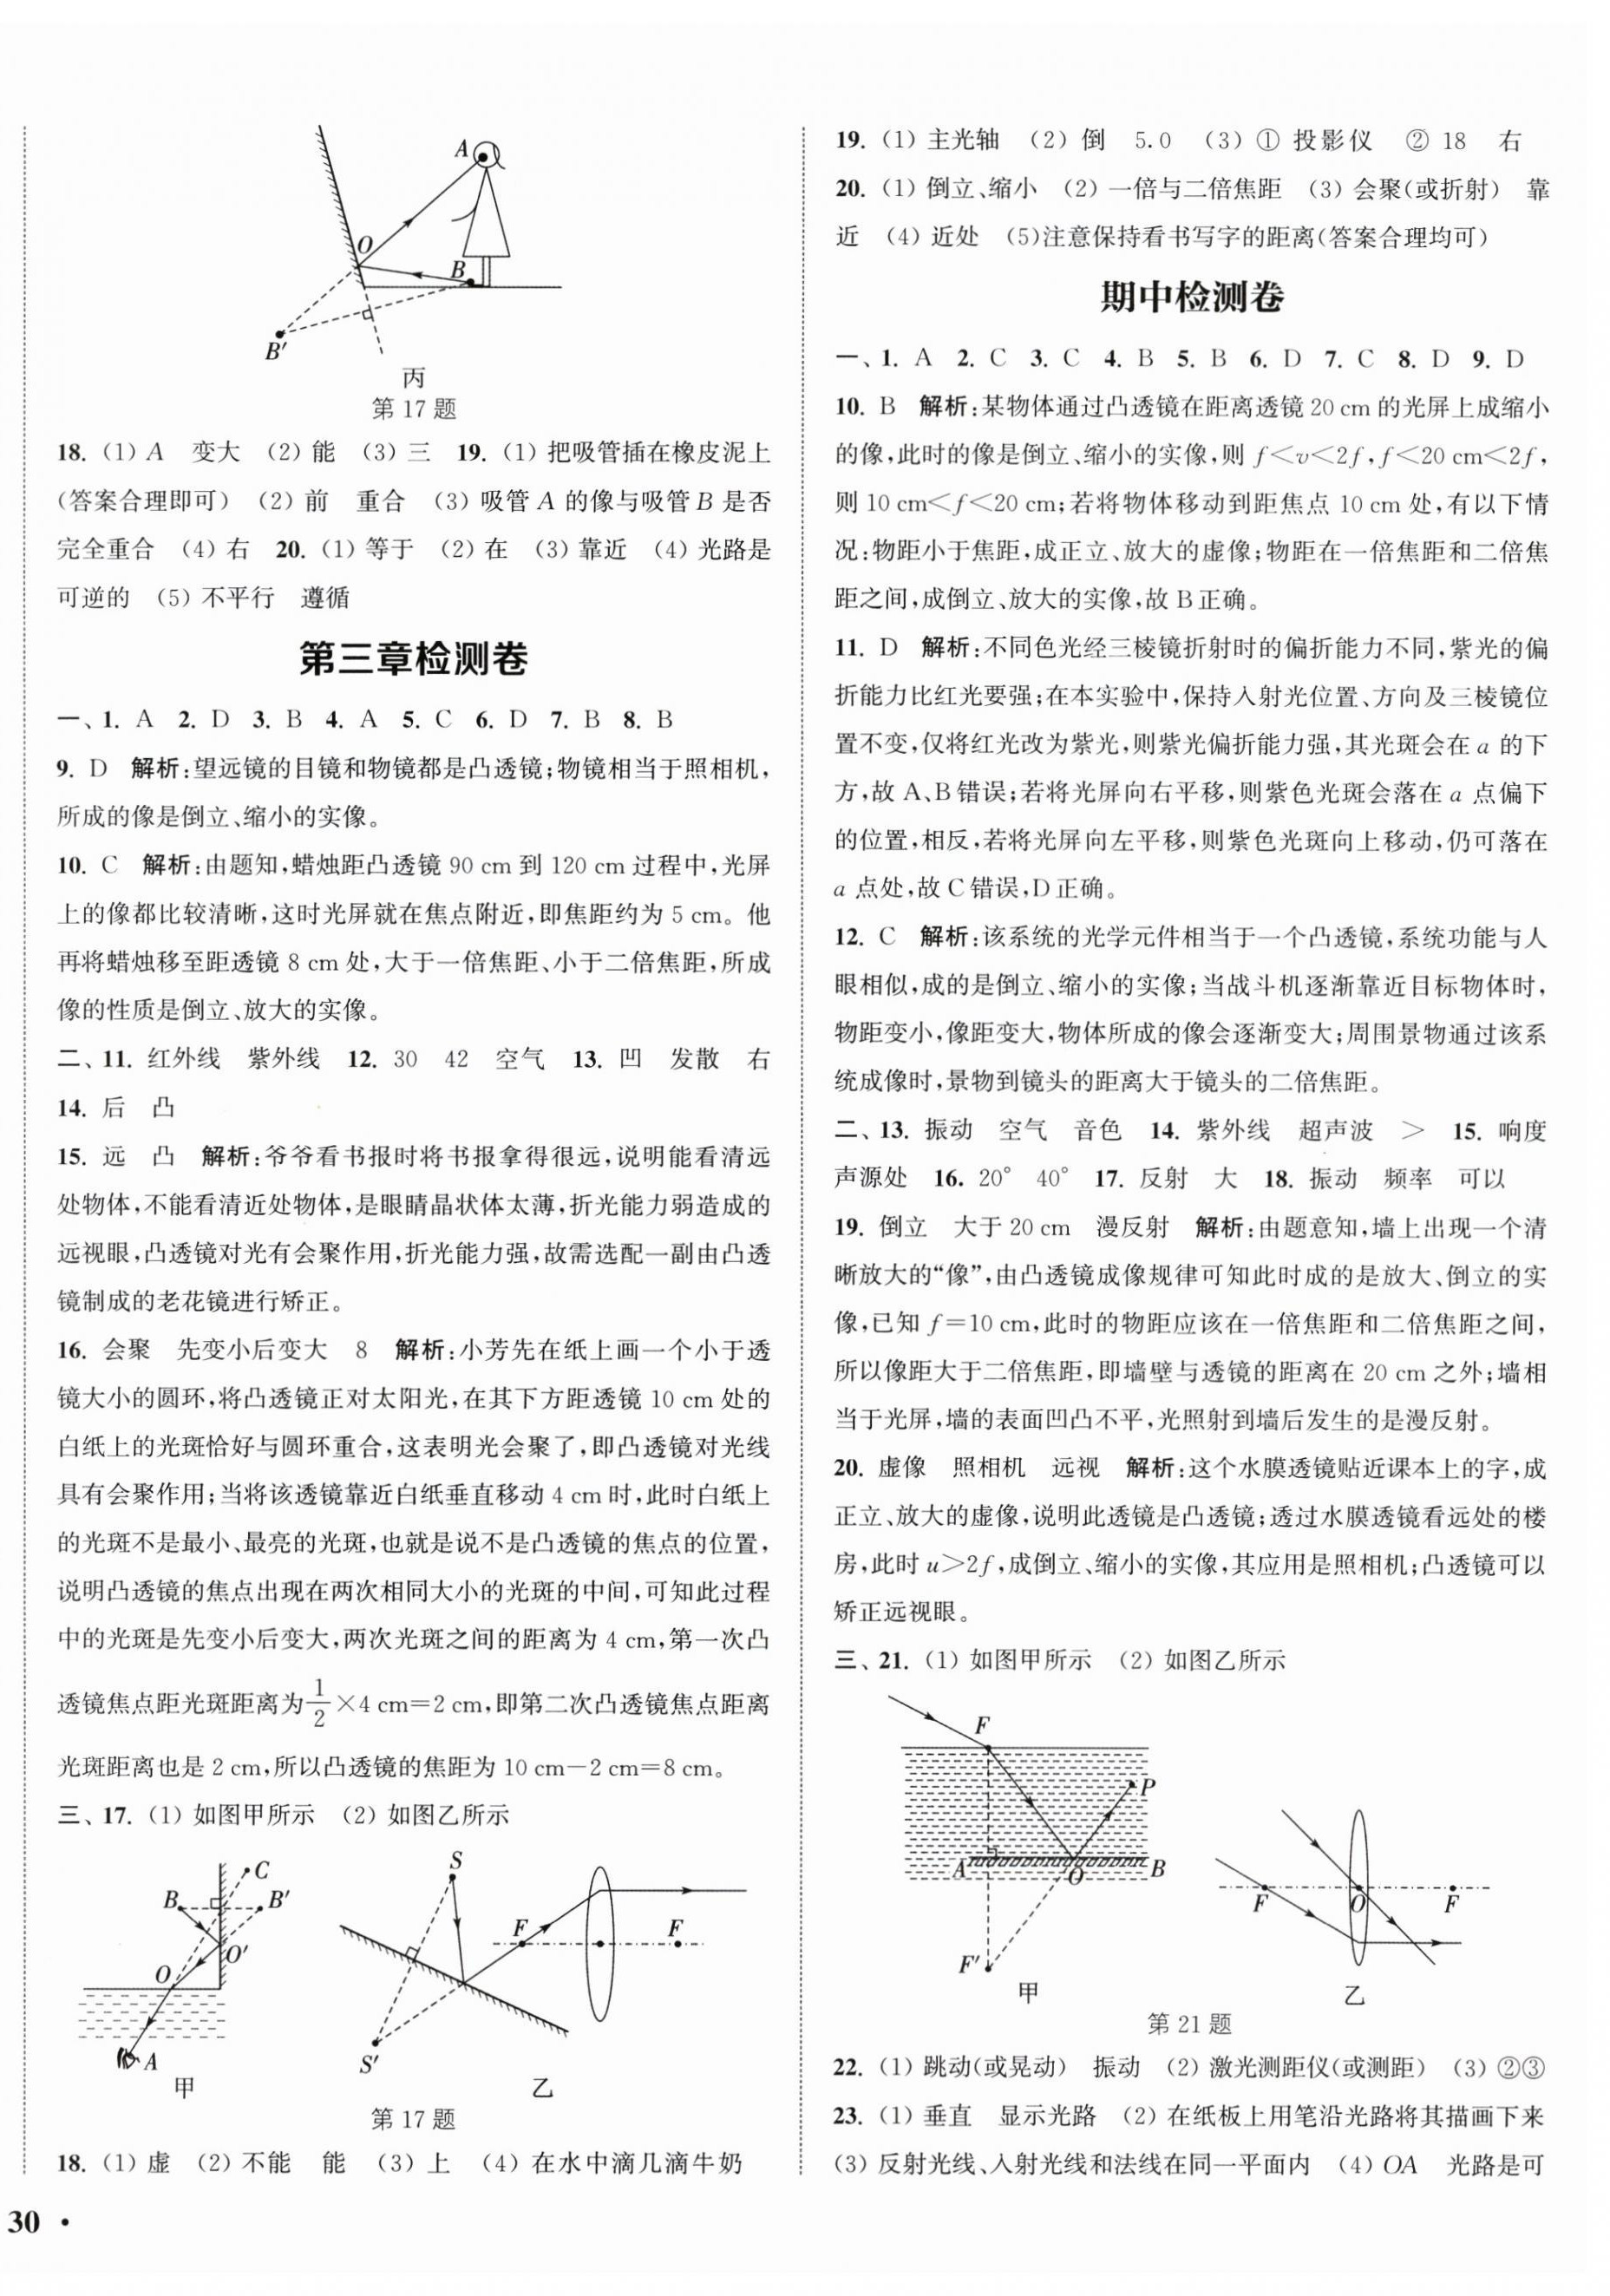 A
O
B
B′
丙
第 17 题
18. (1) A　变大　(2) 能　(3) 三　19. (1) 把吸管插在橡皮泥上
(答案合理即可)　(2) 前　重合　(3) 吸管 A 的像与吸管 B 是否
完全重合　(4) 右　20. (1) 等于　(2) 在　(3) 靠近　(4) 光路是
可逆的　(5) 不平行　遵循
第三章检测卷
一、1. A　2. D　3. B　4. A　5. C　6. D　7. B　8. B
9. D　解析:望远镜的目镜和物镜都是凸透镜;物镜相当于照相机,
所成的像是倒立、缩小的实像。
10. C　解析:由题知,蜡烛距凸透镜 90 cm 到 120 cm 过程中,光屏
上的像都比较清晰,这时光屏就在焦点附近,即焦距约为 5 cm。他
再将蜡烛移至距透镜 8 cm 处,大于一倍焦距、小于二倍焦距,所成
像的性质是倒立、放大的实像。
二、11. 红外线　紫外线　12. 30　42　空气　13. 凹　发散　右
14. 后　凸
15. 远　凸　解析:爷爷看书报时将书报拿得很远,说明能看清远
处物体,不能看清近处物体,是眼睛晶状体太薄,折光能力弱造成的
远视眼,凸透镜对光有会聚作用,折光能力强,故需选配一副由凸透
镜制成的老花镜进行矫正。
16. 会聚　先变小后变大　8　解析:小芳先在纸上画一个小于透
镜大小的圆环,将凸透镜正对太阳光,在其下方距透镜 10 cm 处的
白纸上的光斑恰好与圆环重合,这表明光会聚了,即凸透镜对光线
具有会聚作用;当将该透镜靠近白纸垂直移动 4 cm 时,此时白纸上
的光斑不是最小、最亮的光斑,也就是说不是凸透镜的焦点的位置,
说明凸透镜的焦点出现在两次相同大小的光斑的中间,可知此过程
中的光斑是先变小后变大,两次光斑之间的距离为 4 cm,第一次凸
透镜焦点距光斑距离为 1/2 ×4 cm=2 cm,即第二次凸透镜焦点距离
光斑距离也是 2 cm,所以凸透镜的焦距为 10 cm－2 cm=8 cm。
三、17. (1) 如图甲所示　(2) 如图乙所示
C
B
B′
O′
O
A
甲
S
F
F
S′
乙
第 17 题
18. (1) 虚　(2) 不能　能　(3) 上　(4) 在水中滴几滴牛奶
30 •
19. (1) 主光轴　(2) 倒　5.0　(3) ① 投影仪　② 18　右
20. (1) 倒立、缩小　(2) 一倍与二倍焦距　(3) 会聚(或折射)　靠
近　(4) 近处　(5)注意保持看书写字的距离(答案合理均可)
期中检测卷
一、1. A　2. C　3. C　4. B　5. B　6. D　7. C　8. D　9. D
10. B　解析:某物体通过凸透镜在距离透镜 20 cm 的光屏上成缩小
的像,此时的像是倒立、缩小的实像,则 f＜v＜2f,f＜20 cm＜2f,
则 10 cm＜f＜20 cm;若将物体移动到距焦点 10 cm 处,有以下情
况:物距小于焦距,成正立、放大的虚像;物距在一倍焦距和二倍焦
距之间,成倒立、放大的实像,故 B 正确。
11. D　解析:不同色光经三棱镜折射时的偏折能力不同,紫光的偏
折能力比红光要强;在本实验中,保持入射光位置、方向及三棱镜位
置不变,仅将红光改为紫光,则紫光偏折能力强,其光斑会在 a 的下
方,故 A、B 错误;若将光屏向右平移,则紫色光斑会落在 a 点偏下
的位置,相反,若将光屏向左平移,则紫色光斑向上移动,仍可落在
a 点处,故 C 错误,D 正确。
12. C　解析:该系统的光学元件相当于一个凸透镜,系统功能与人
眼相似,成的是倒立、缩小的实像;当战斗机逐渐靠近目标物体时,
物距变小,像距变大,物体所成的像会逐渐变大;周围景物通过该系
统成像时,景物到镜头的距离大于镜头的二倍焦距。
二、13. 振动　空气　音色　14. 紫外线　超声波　＞　15. 响度
声源处　16. 20°　40°　17. 反射　大　18. 振动　频率　可以
19. 倒立　大于 20 cm　漫反射　解析:由题意知,墙上出现一个清
晰放大的“像”,由凸透镜成像规律可知此时成的是放大、倒立的实
像,已知 f=10 cm,此时的物距应该在一倍焦距和二倍焦距之间,
所以像距大于二倍焦距,即墙壁与透镜的距离在 20 cm 之外;墙相
当于光屏,墙的表面凹凸不平,光照射到墙后发生的是漫反射。
20. 虚像　照相机　远视　解析:这个水膜透镜贴近课本上的字,成
正立、放大的虚像,说明此透镜是凸透镜;透过水膜透镜看远处的楼
房,此时 u＞2f,成倒立、缩小的实像,其应用是照相机;凸透镜可以
矫正远视眼。
三、21. (1) 如图甲所示　(2) 如图乙所示
F
P
A
O
B
F′
甲
F
O
F
乙
第 21 题
22. (1) 跳动(或晃动)　振动　(2) 激光测距仪(或测距)　(3) ②③
23. (1) 垂直　显示光路　(2) 在纸板上用笔沿光路将其描画下来
(3) 反射光线、入射光线和法线在同一平面内　(4) OA　光路是可